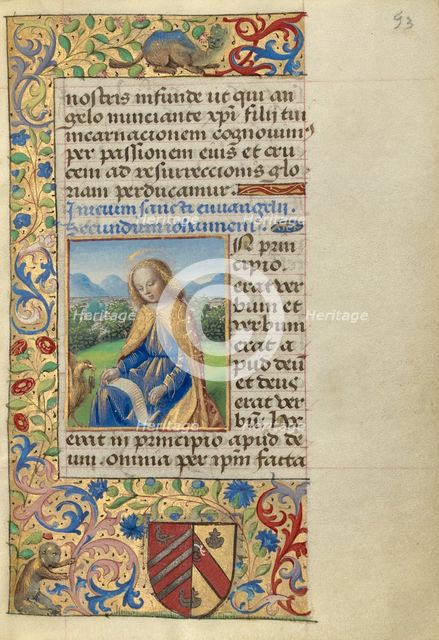 93
nostris infunde ut qui an
gelo nunciante xpi filii tui
incarnacionem cognovim9
per passionem eius et cru
cem ad resurreccionis glo
riam perducamur.
Inicium sancti euuangelii
Secundum iohannem.
N prin
cipio
erat ver
bum et
verbum
erat a
pud deu
et deus
erat ver
bu: hoc
erat in principio apud de
um. omnia per ipm facta
Heritage
Heritage
Heritage
Heritage
Heritage
Heritage
Heritage
Heritage